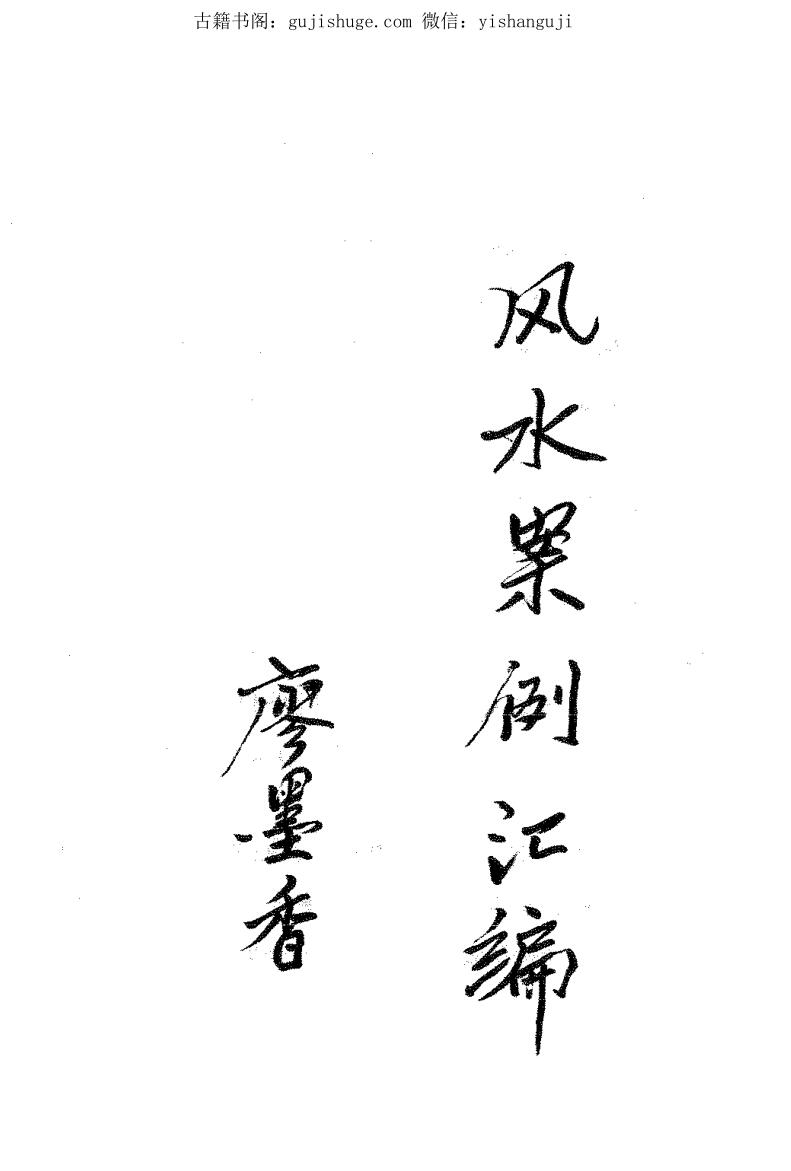 古籍书阁：gujishuge.com 微信：yishanguji
风水案例汇编
廖墨香